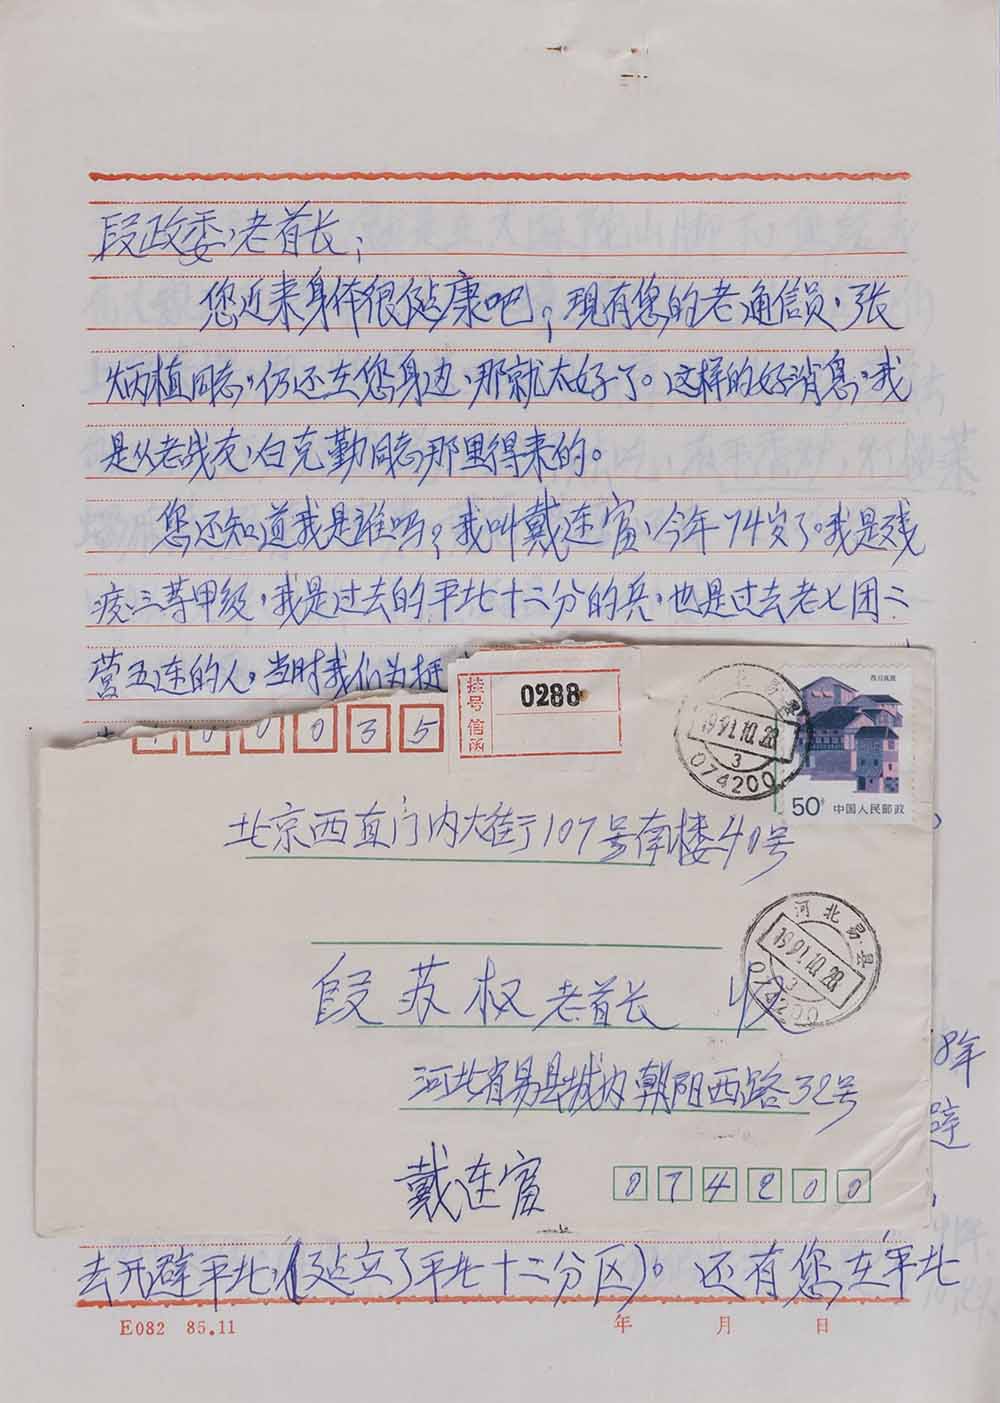 段政委、老首长；
您近来身体很健康吧，现有您的老通信员、张
炳植同志，仍还在您身边，那就太好了。这样的好消息，我
是从老战友，白克勤同志那里得来的。
您还知道我是谁吗？我叫戴连富、今年74岁了。我是残
疫三等甲级，我是过去的平北十二分的兵，也是过去老七团二
营五连的人，当时我们为
挂号信函
0288
100035
北易县
1991.10.28
3
074200
四川民居
50分 中国人民邮政
北京西直门内大街107号南楼40号
河北易县
1991.10.28
3
074200
段苏权老首长 收
河北省易县城内朝阳西路32号
戴连富
074200
8年
避
去开避平北，(建立了平北十二分区)。还有您在平北
E082 85.11
年 月 日